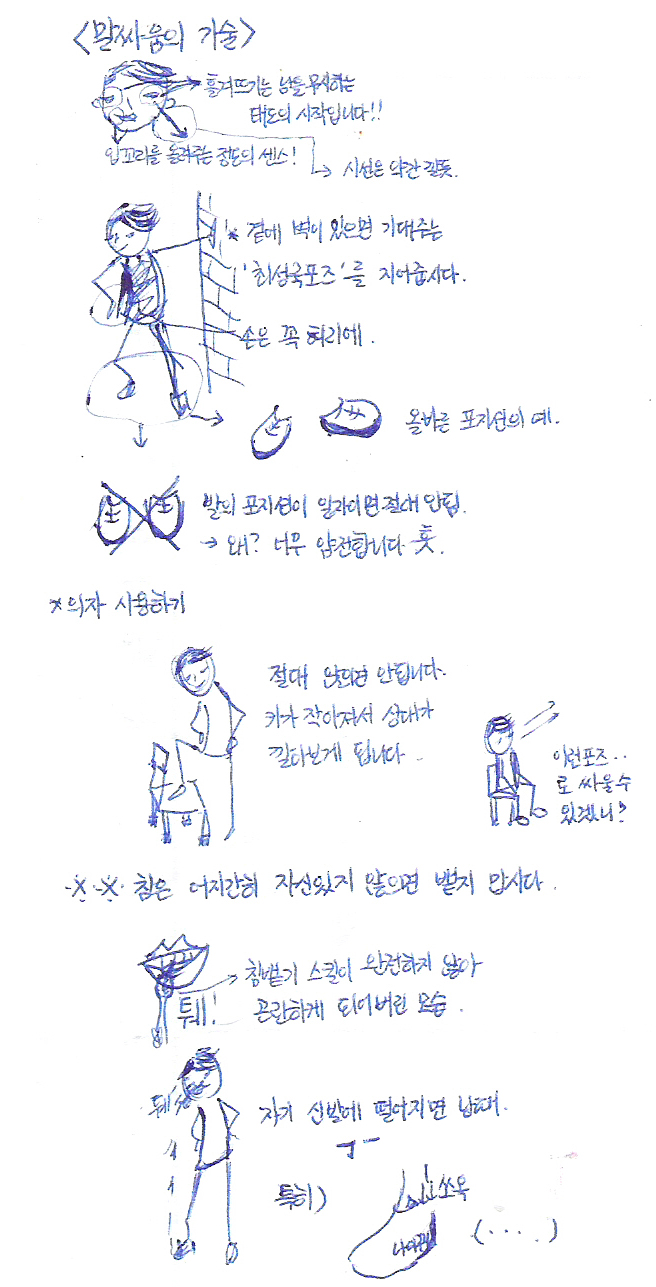 <말싸움의 기술>
흘겨뜨기는 남을 무시하는
태도의 시작입니다!!
입꼬리를 올려주는 정도의 센스!
시선은 약간 길뜻.
* 곁에 벽이 있으면 기대주는
'최성국포즈'를 지어줍시다.
손은 꼭 허리에.
올바른 포지션의 예.
발의 포지션이 일자이면 절대 안됨.
→ 왜? 너무 얌전합니다 훗.
*의자 사용하기
절대 앉으면 안됩니다.
키가 작아져서 상대가
깔타보게 됩니다..
이런포즈..
로 싸울수
있겠니?
※※ 침은 어지간히 자신있지 않으면 뱉지 맙시다.
침뱉기 스킬이 완전하지 않아
곤란하게 되어버린 모습.
퉤!
퉤
자기 신발에 떨어지면 낭패.
특히)
쏘옥
(....)